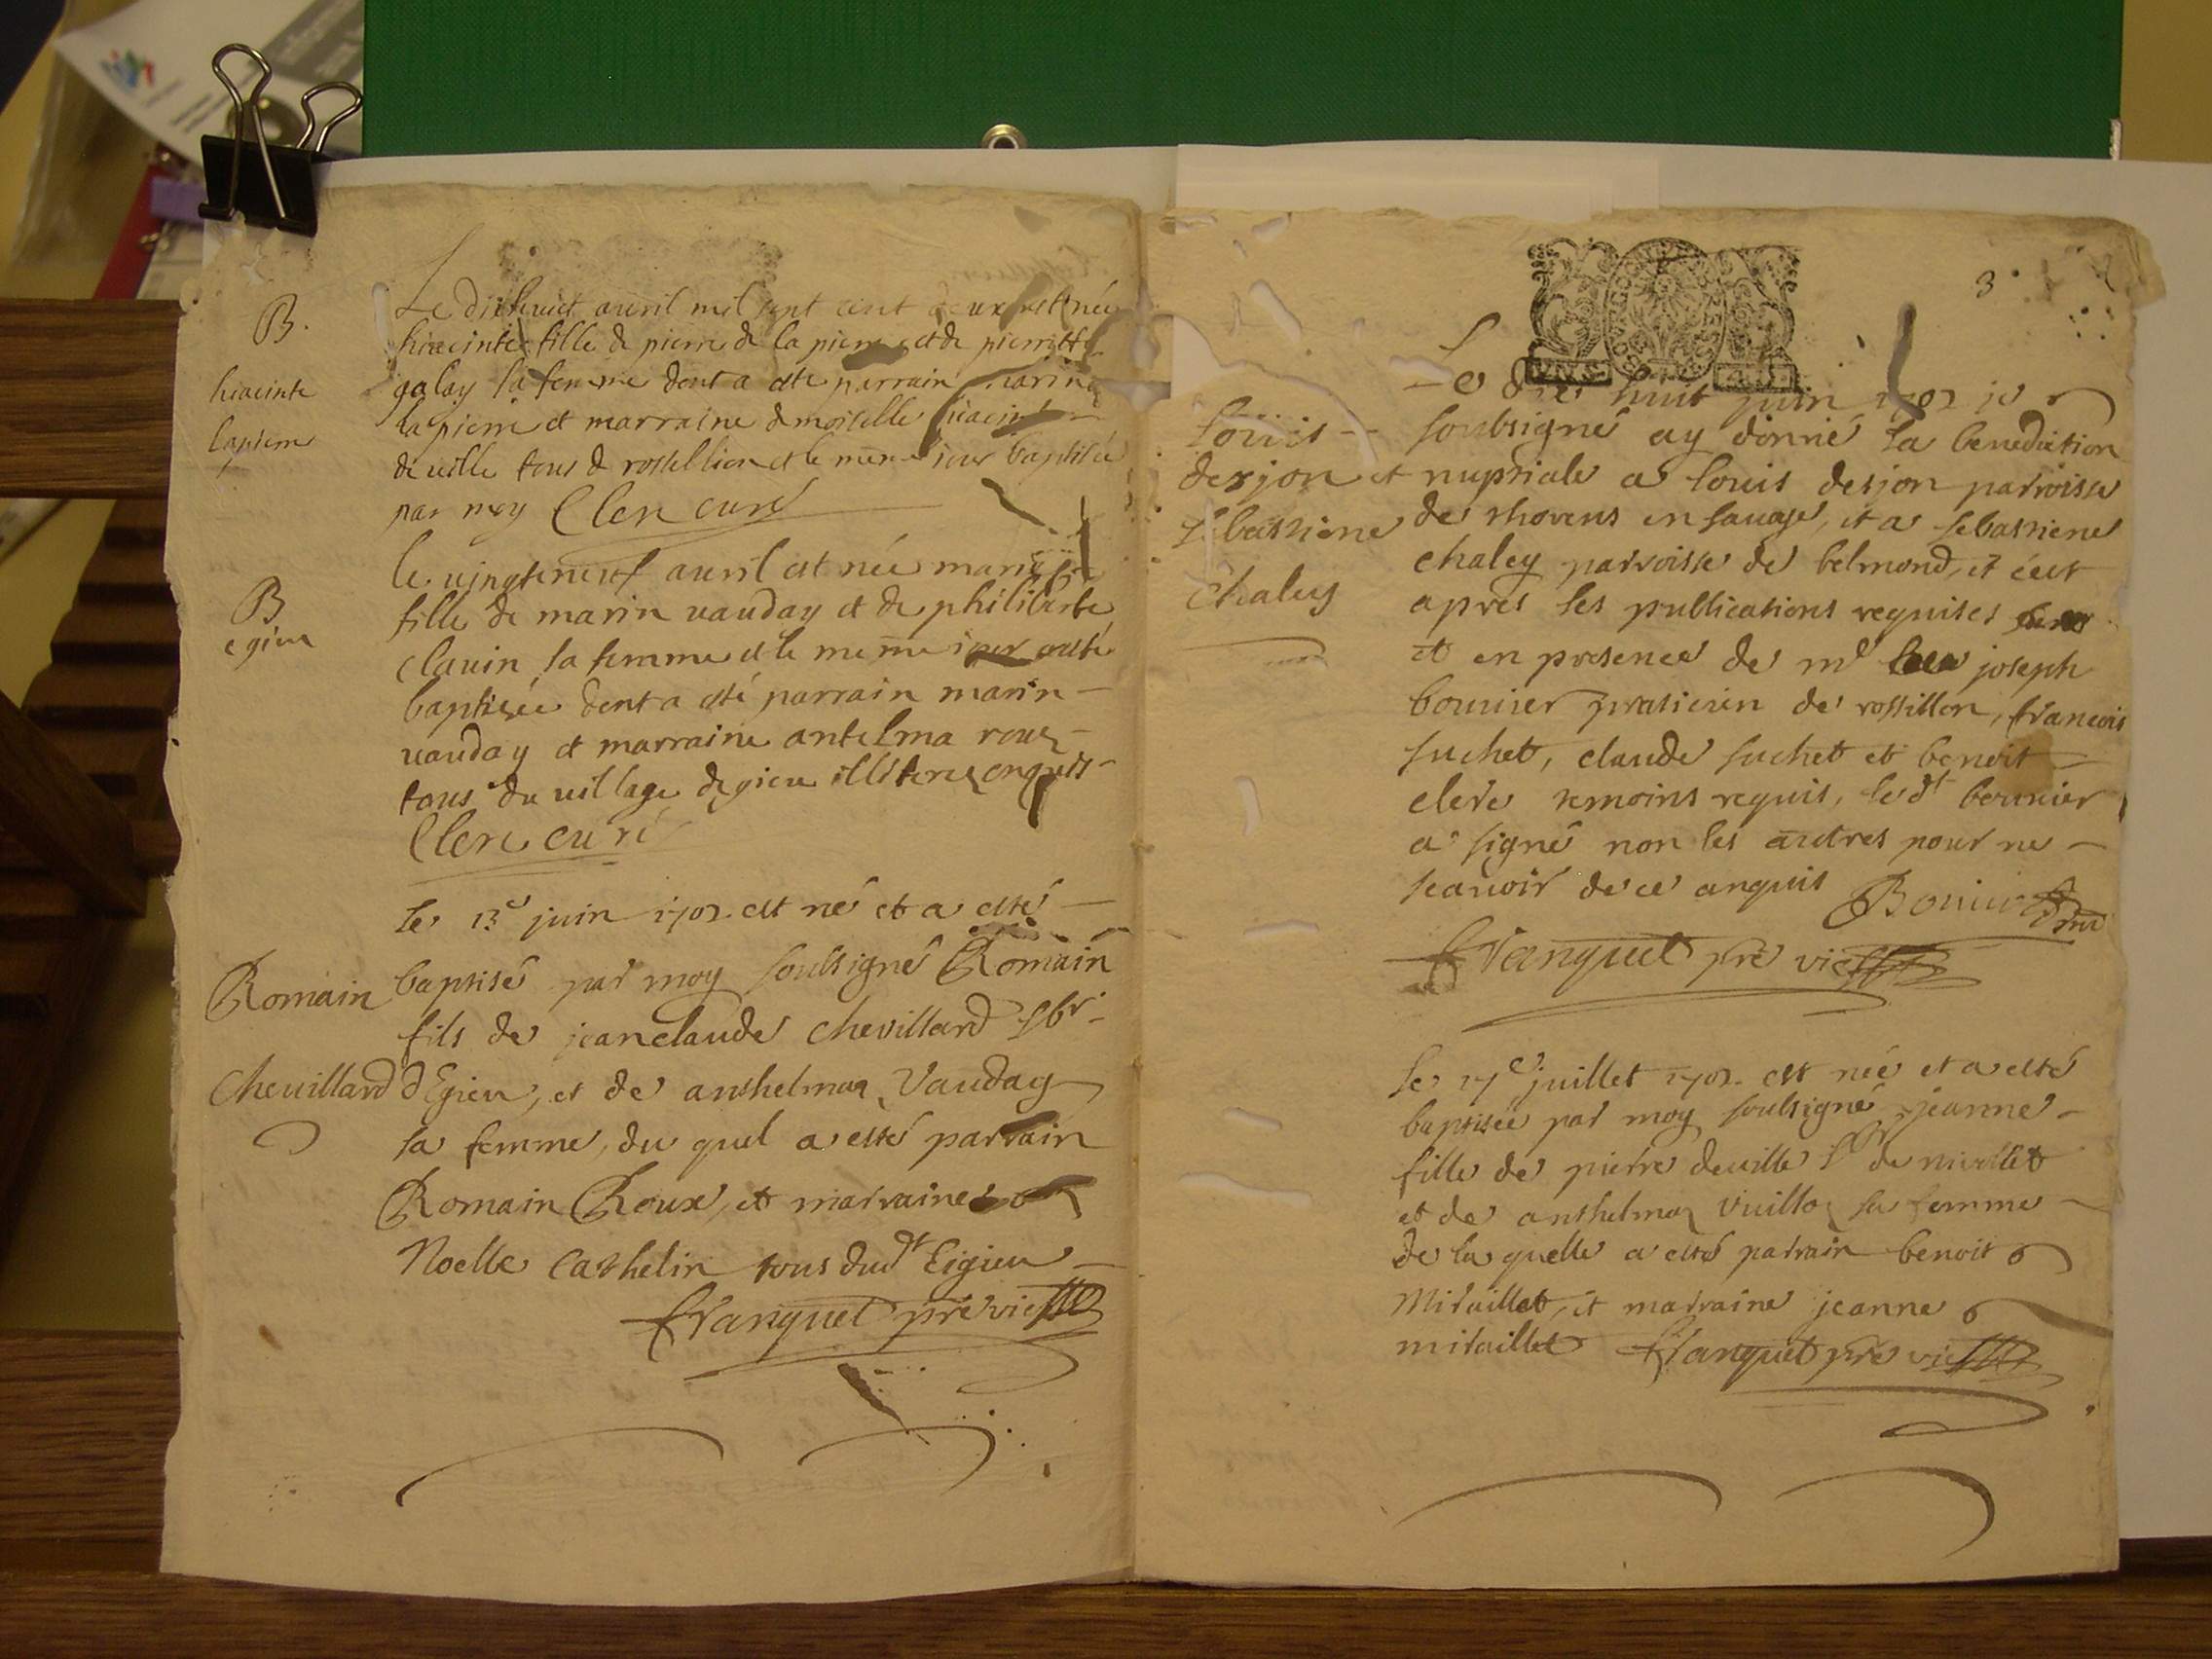 B.
hiacinte
lapierre
Le dixhuict auril mil sept cent deux est née
hiacinte fille de pierre de la pierre et de pierrette
galay sa femme dont a esté parrain marin
la pierre et marraine demoiselle hiacinte
de uille tous de rossellion et le meme jour baptisée
par moy Clerc curé
B
egieu
le uingtneuf auril est née marie
fille de marin uauday et de philiberte
clauin sa femme et le meme jour a esté
baptisée dont a esté parrain marin
uauday et marraine antelma roux
tous du uillage degieu illiterez enquis
Clerc curé
Romain
Cheuillard
le 13e juin 1702 est né et a esté
baptisé par moy soubsigné Romain
fils de jeanclaude Chevillard lbr
d'Egieu, et de anthelma Vauday
sa femme, du quel a esté parrain
Romain Roux, et marraine
Noelle Cathelin tous dudt Eigieu
Franquet pre vic
3
Le dix huit juin 1702 je
Louis
desjon et
sebastiene
Chaley
soubsigné ay donné la benediction
nuptiale a louis desjon parroisse
de thorens en sauoye, et a sebastiene
chaley parroisse de belmond, et c'est
apres les publications requises
et en presence de mr joseph
bouuier praticien de rossillon, francois
suchet, claude suchet et benoit
clerc temoins requis, ledt bouuier
a signé non les autres pour ne
scauoir de ce anquis Bouuier
Franquet pre vic
le 17e juillet 1702 est née et a esté
baptisée par moy soubsigné jeanne
fille de pierre deuille lbr de nivollet
et de anthelma Vuillo sa femme
de la quelle a esté parrain benoit
Miraillet, et marraine jeanne
miraillet Franquet pre vic